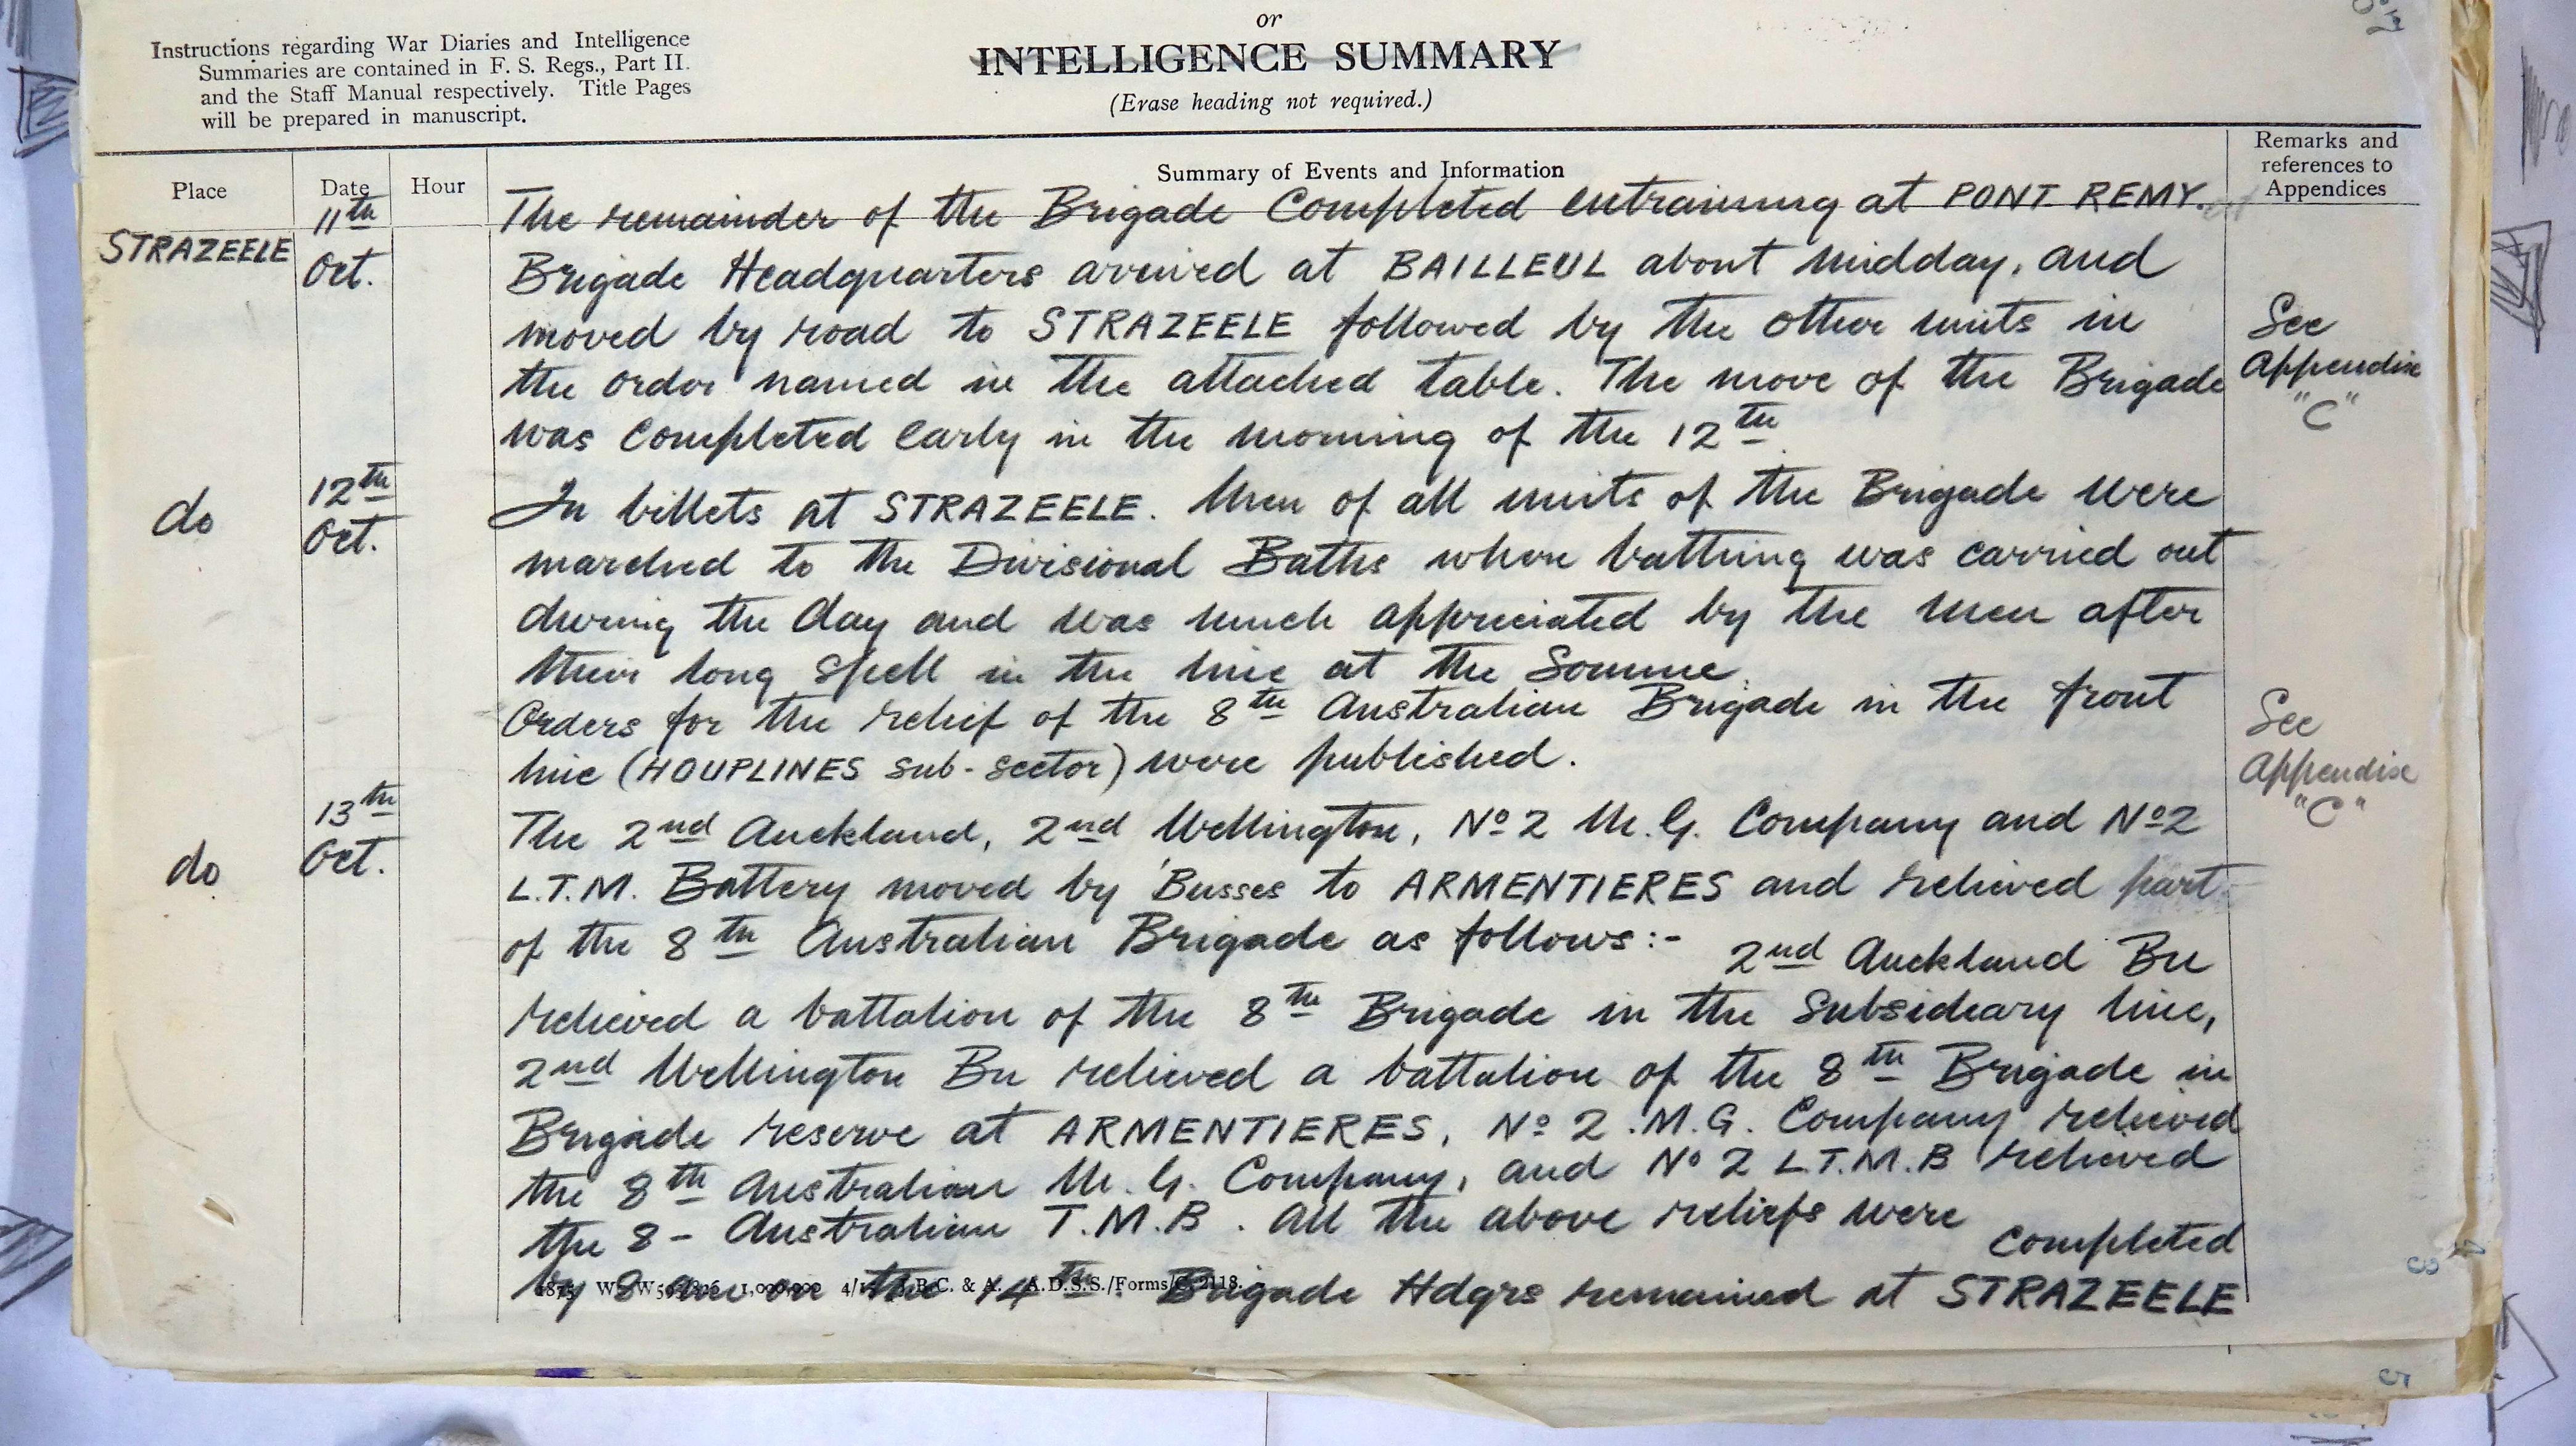 or
Instructions regarding War Diaries and Intelligence
Summaries are contained in F. S. Regs., Part II.
and the Staff Manual respectively. Title Pages
will be prepared in manuscript.
INTELLIGENCE SUMMARY
(Erase heading not required.)
Place
Date
Hour
Summary of Events and Information
Remarks and
references to
Appendices
STRAZEELE
11th
Oct.
The remainder of the Brigade Completed entraining at PONT REMY.
Brigade Headquarters arrived at BAILLEUL about midday, and
moved by road to STRAZEELE followed by the other units in
the order named in the attached table. The move of the Brigade
was completed early in the morning of the 12th.
See
Appendix
"C"
do
12th
Oct.
In billets at STRAZEELE. Men of all units of the Brigade were
marched to the Divisional Baths where bathing was carried out
during the day and was much appreciated by the men after
their long spell in the line at the Somme.
Orders for the relief of the 8th Australian Brigade in the front
line (HOUPLINES sub-sector) were published.
See
Appendix
"C"
do
13th
Oct.
The 2nd Auckland, 2nd Wellington, No 2 M.G. Company and No 2
L.T.M. Battery moved by 'Busses to ARMENTIERES and relieved part
of the 8th Australian Brigade as follows:- 2nd Auckland Bn
relieved a battalion of the 8th Brigade in the Subsideary line,
2nd Wellington Bn relieved a battalion of the 8th Brigade in
Brigade reserve at ARMENTIERES, No 2 .M.G. Company relieved
the 8th Australian M.G. Company, and No 2 L.T.M.B relieved
the 8- Australian T.M.B. All the above reliefs were completed
by 8 am on the 14th. Brigade Hdqrs remained at STRAZEELE
1,000,000 4/15 J.B.C. & A. A.D.S.S./Forms/C. 2118.